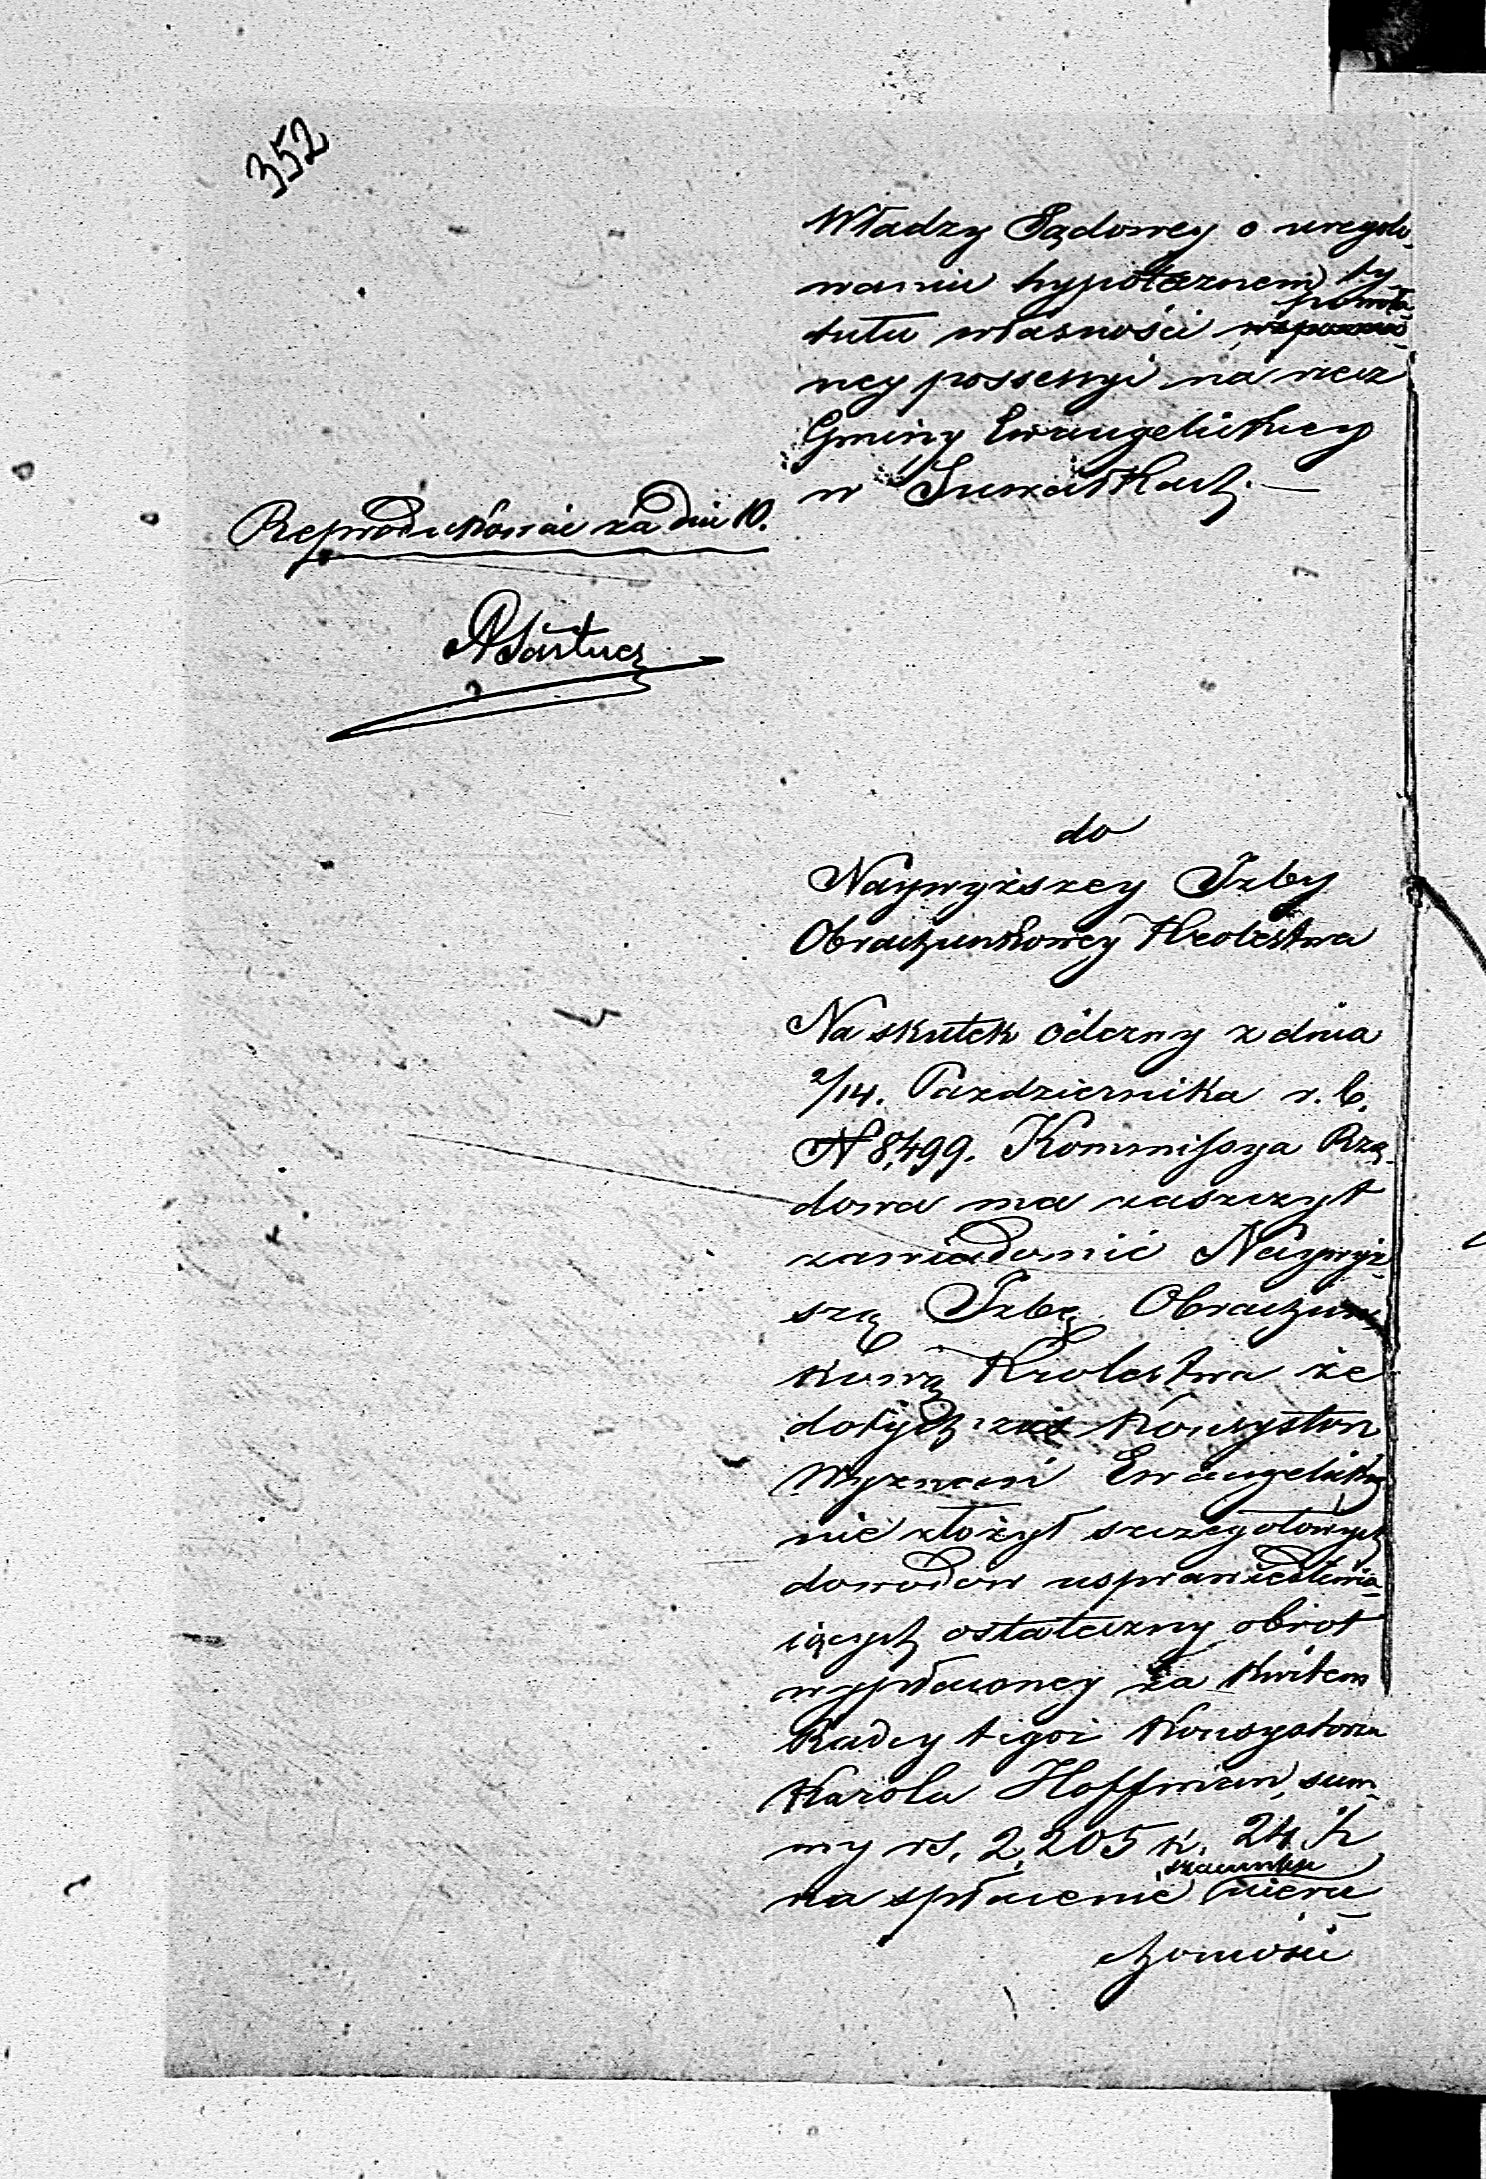 352
Władzy Sądowey o uregulo-
waniu hypotecznem ty-
tułu własności powoła-
ney possessyi na rzecz
Gminy Ewangelickiey
w Suwałkach. —
Reprodukować za dni 10.
do
Naywyższey Izby
Obrachunkowey Krolestwa
Na skutek odezwy z dnia
2/14. Pazdziernika r. b.
N 8,499. Kommissya Rzą-
dowa ma zaszczyt
zawiadomić Naywyż-
szą Izbę Obrachun-
kową Krolestwa że
dotychczas Konsystorz
Wyznań Ewangelickich
nie złożył szczegołowych
dowodow usprawiedliwia-
iących ostateczny obrot
wypłaconey za kwitem
Radcy tegoż Konsystorza
Karola Hoffman, sum-
my rs. 2,205 k. 24 ½
na spłacenie szacunku nieru-
chomości